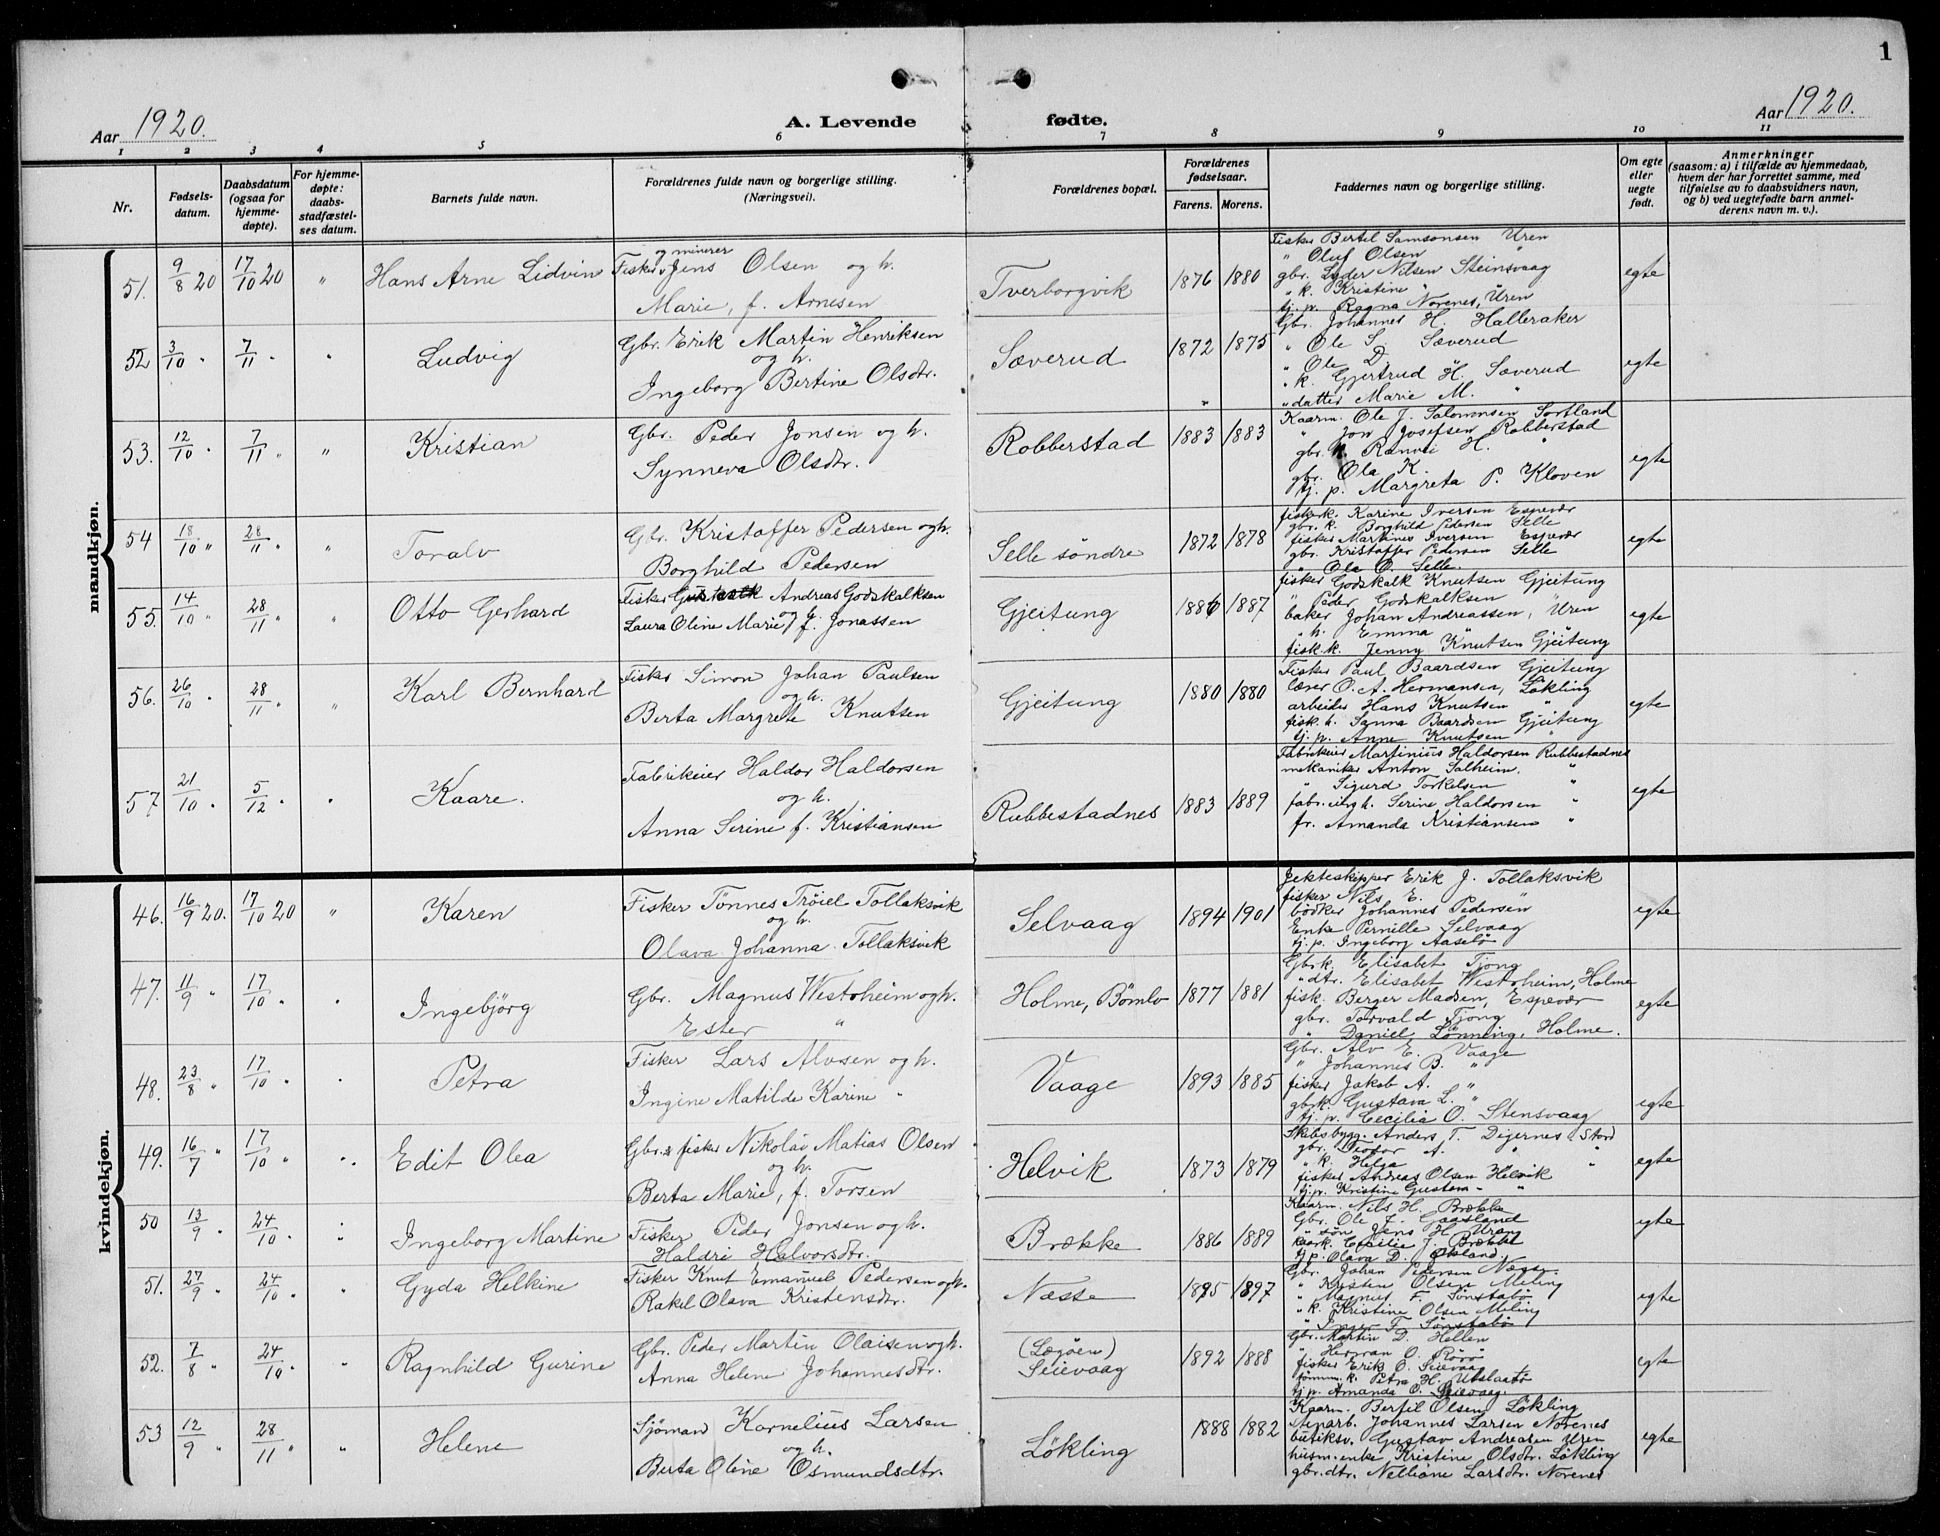 1
Aar 1920.
A. Levende fødte.
Aar 1920.
1 2 3 4 5 6 7 8 9 10 11
Nr.
Fødsels-
datum.
Daabsdatum
(ogsaa for
hjemme-
døpte).
For hjemme-
døpte:
daabs-
stadfæstel-
ses datum.
Barnets fulde navn.
Forældrenes fulde navn og borgerlige stilling.
(Næringsvei).
Forældrenes bopæl.
Forældrenes
fødselsaar.
Farens. Morens.
Faddernes navn og borgerlige stilling.
Om egte
eller
uegte
født.
Anmerkninger
(saasom: a) i tilfælde av hjemmedaab,
hvem der har forrettet samme, med
tilføielse av to daabsvidners navn,
og b) ved uegtefødte barn anmel-
derens navn m. v.).
mandkjøn.
51. 9/8 20 17/10 20 " Hans Arne Lidvin
og minerer
Fisker Jens Olsen og h.
Marie, f. Arnesen
Tverborgvik 1876 1880
Fisker Bertel Samsonsen Uren
" Oluf Olsen "
gbr. Lyder Nilsen Steinsvaag
" k. Kristine "
tj. p. Ragna Norenes, Uren
egte
52 3/10 " 7/11 " " Ludvig
Gbr. Erik Martin Henriksen
og h.
Ingeborg Bertine Olsdtr.
Sæverud 1872 1875
Gbr. Johannes H. Halleraker
" Ole S. Sæverud
" Ole D. "
" k. Gjertrud H. Sæverud
" datter Marie M. "
egte
53. 12/10 " 7/11 " " Kristian
Gbr. Peder Jonsen og h.
Synneva Olsdtr.
Robberstad 1883 1883
Kaarm. Ole J. Salomonsen Sortland
" Jon Josefsen Robberstad
gbr. k. Ranvei H. "
gbr. Ola K.
tj. p. Margreta P. Kloven
egte
54 18/10 " 28/11 " " Toralv
Gbr. Kristoffer Pedersen og h.
Borghild Pedersen
Selle søndre 1872 1878
fisker k. Karine Iversen Espevær
gbr. k. Borghild Pedersen Selle
fisker Martines Iversen Espevær
gbr. Kristoffer Pedersen Selle
" Ole O. Selle.
egte
55. 14/10 " 28/11 " " Otto Gerhard
Fisker Andreas Godskalksen
og h.
Laura Oline Marie f. Jonassen
Gjeitung 1886 1887
fisker Godskalk Knutsen Gjeitung
" Peder Godskalksen "
baker Johan Andreassen, Uren
" h. Emma "
fisk. k. Jenny Knutsen Gjeitung
egte
56. 26/10 " 28/11 " " Karl Bernhard
Fisker Simon Johan Paulsen
og h.
Berta Margrete Knutsen
Gjeitung 1880 1880
Fisker Paul Baardsen Gjeitung
lærer O. A. Hermansen, Løkling
arbeider Hans Knutsen "
fisk. h. Sanna Baardsen Gjeitung
tj. p. Anne Knutsen "
egte
57 21/10 " 5/12 " " Kaare.
Fabrikeier Haldor Haldorsen
og h.
Anna Serine f. Kristiansen
Rubbestadnes 1883 1889
Fabrikeier Martinius Haldorsen Rubbestadnes
mekaniker Anton Salheim. "
" Sigurd Torkelsen "
fabr.eier h. Serine Haldorsen "
fr. Amanda Kristiansen "
egte
kvindekjøn.
46. 16/9 20. 17/10 20 " Karen
Fisker Tønnes Trøiel Tollaksvik
og h.
Olava Johanna Tollaksvik
Selvaag 1894 1901
Jekteskipper Erik J. Tollaksvik
fisker Nils E. "
bødker Johannes Pedersen "
Enke Pernille Selvaag
tj. p. Ingeborg Aaselø
egte
47. 11/9 " 17/10 " " Ingebjörg
Gbr. Magnus Westoheim og h.
Ester "
Holme, Bömlo 1877 1881
Gbr k. Elisabet Tjong
" dtr. Elisabet Westoheim, Holme
fisk. Berger Madsen, Espevær
gbr. Torvald Tjong
" Daniel Lønning, Holme.
egte
48. 23/8 " 17/10 " " Petra
Fisker Lars Alvsen og h.
Ingine Matilde Karine "
Vaage 1893 1885
Gbr. Alv E. Vaage
" Johannes B. "
fisker Jakob A. "
gbrk. Gustava L. "
tj. p. Cecilia O. Stensvaag
egte
49. 16/7 " 17/10 " " Edit Olea
Gbr. & fisker Nikolai Matias Olsen
og h.
Berta Marie, f. Torsen
Helvik 1873 1879
Skibsbygg. Anders T. Digernes Stord
gbr. A. " "
" k. Helga "
fisker Andreas Olsen Helvik
tj. p. Kristine Gustava "
egte
50 13/9 " 24/10 " " Ingeborg Martine
Fisker Peder Jonsen og h.
Haldri Halvorsdtr.
Brække 1886 1889
Kaarm. Nils H. Brække
Gbr. Ole J. Gaasland
" søn Jens H. Uren
kaark. Cecilie J. Brække
tj. p. Olava D. Økland.
egte
51. 27/9 " 24/10 " " Gyda Helkine
Fisker Knut Emanuel Pedersen og h.
Rakel Olava Kristensdtr.
Næsse 1895 1897
Gbr. Johan Pedersen Næsse.
" Kristen Olsen Meling
" Magnus F. Sønstabø
" k. Kristine Olsen Meling
" Inger F. Sønstabø
egte
52. 7/8 " 24/10 " " Ragnhild Gurine
Gbr. Peder Martin Olaisen og h.
Anna Helene Johannesdtr.
(Lægöen)
Seievaag 1892 1888
Gbr. Martin D. Hellen
" Herman O. Rörö
fisker Erik O. Seievaag
tømm. k. Petra H. Utslaatø
tj. p. Amanda O. Seievaag.
egte
53 12/9 " 28/11 " " Helene
Sjömand Kornelius Larsen
og h.
Berta Oline Osmundsdtr.
Løkling 1888 1882
Kaarm. Bertil Olsen Løkling
Johannes Larsen Norenes
butiksv. Gustav Andreasen Uren
husm. enke Kristine Olsdtr. Løkling
gbr. dtr. Nelliane Larsdtr. Norenes
egte